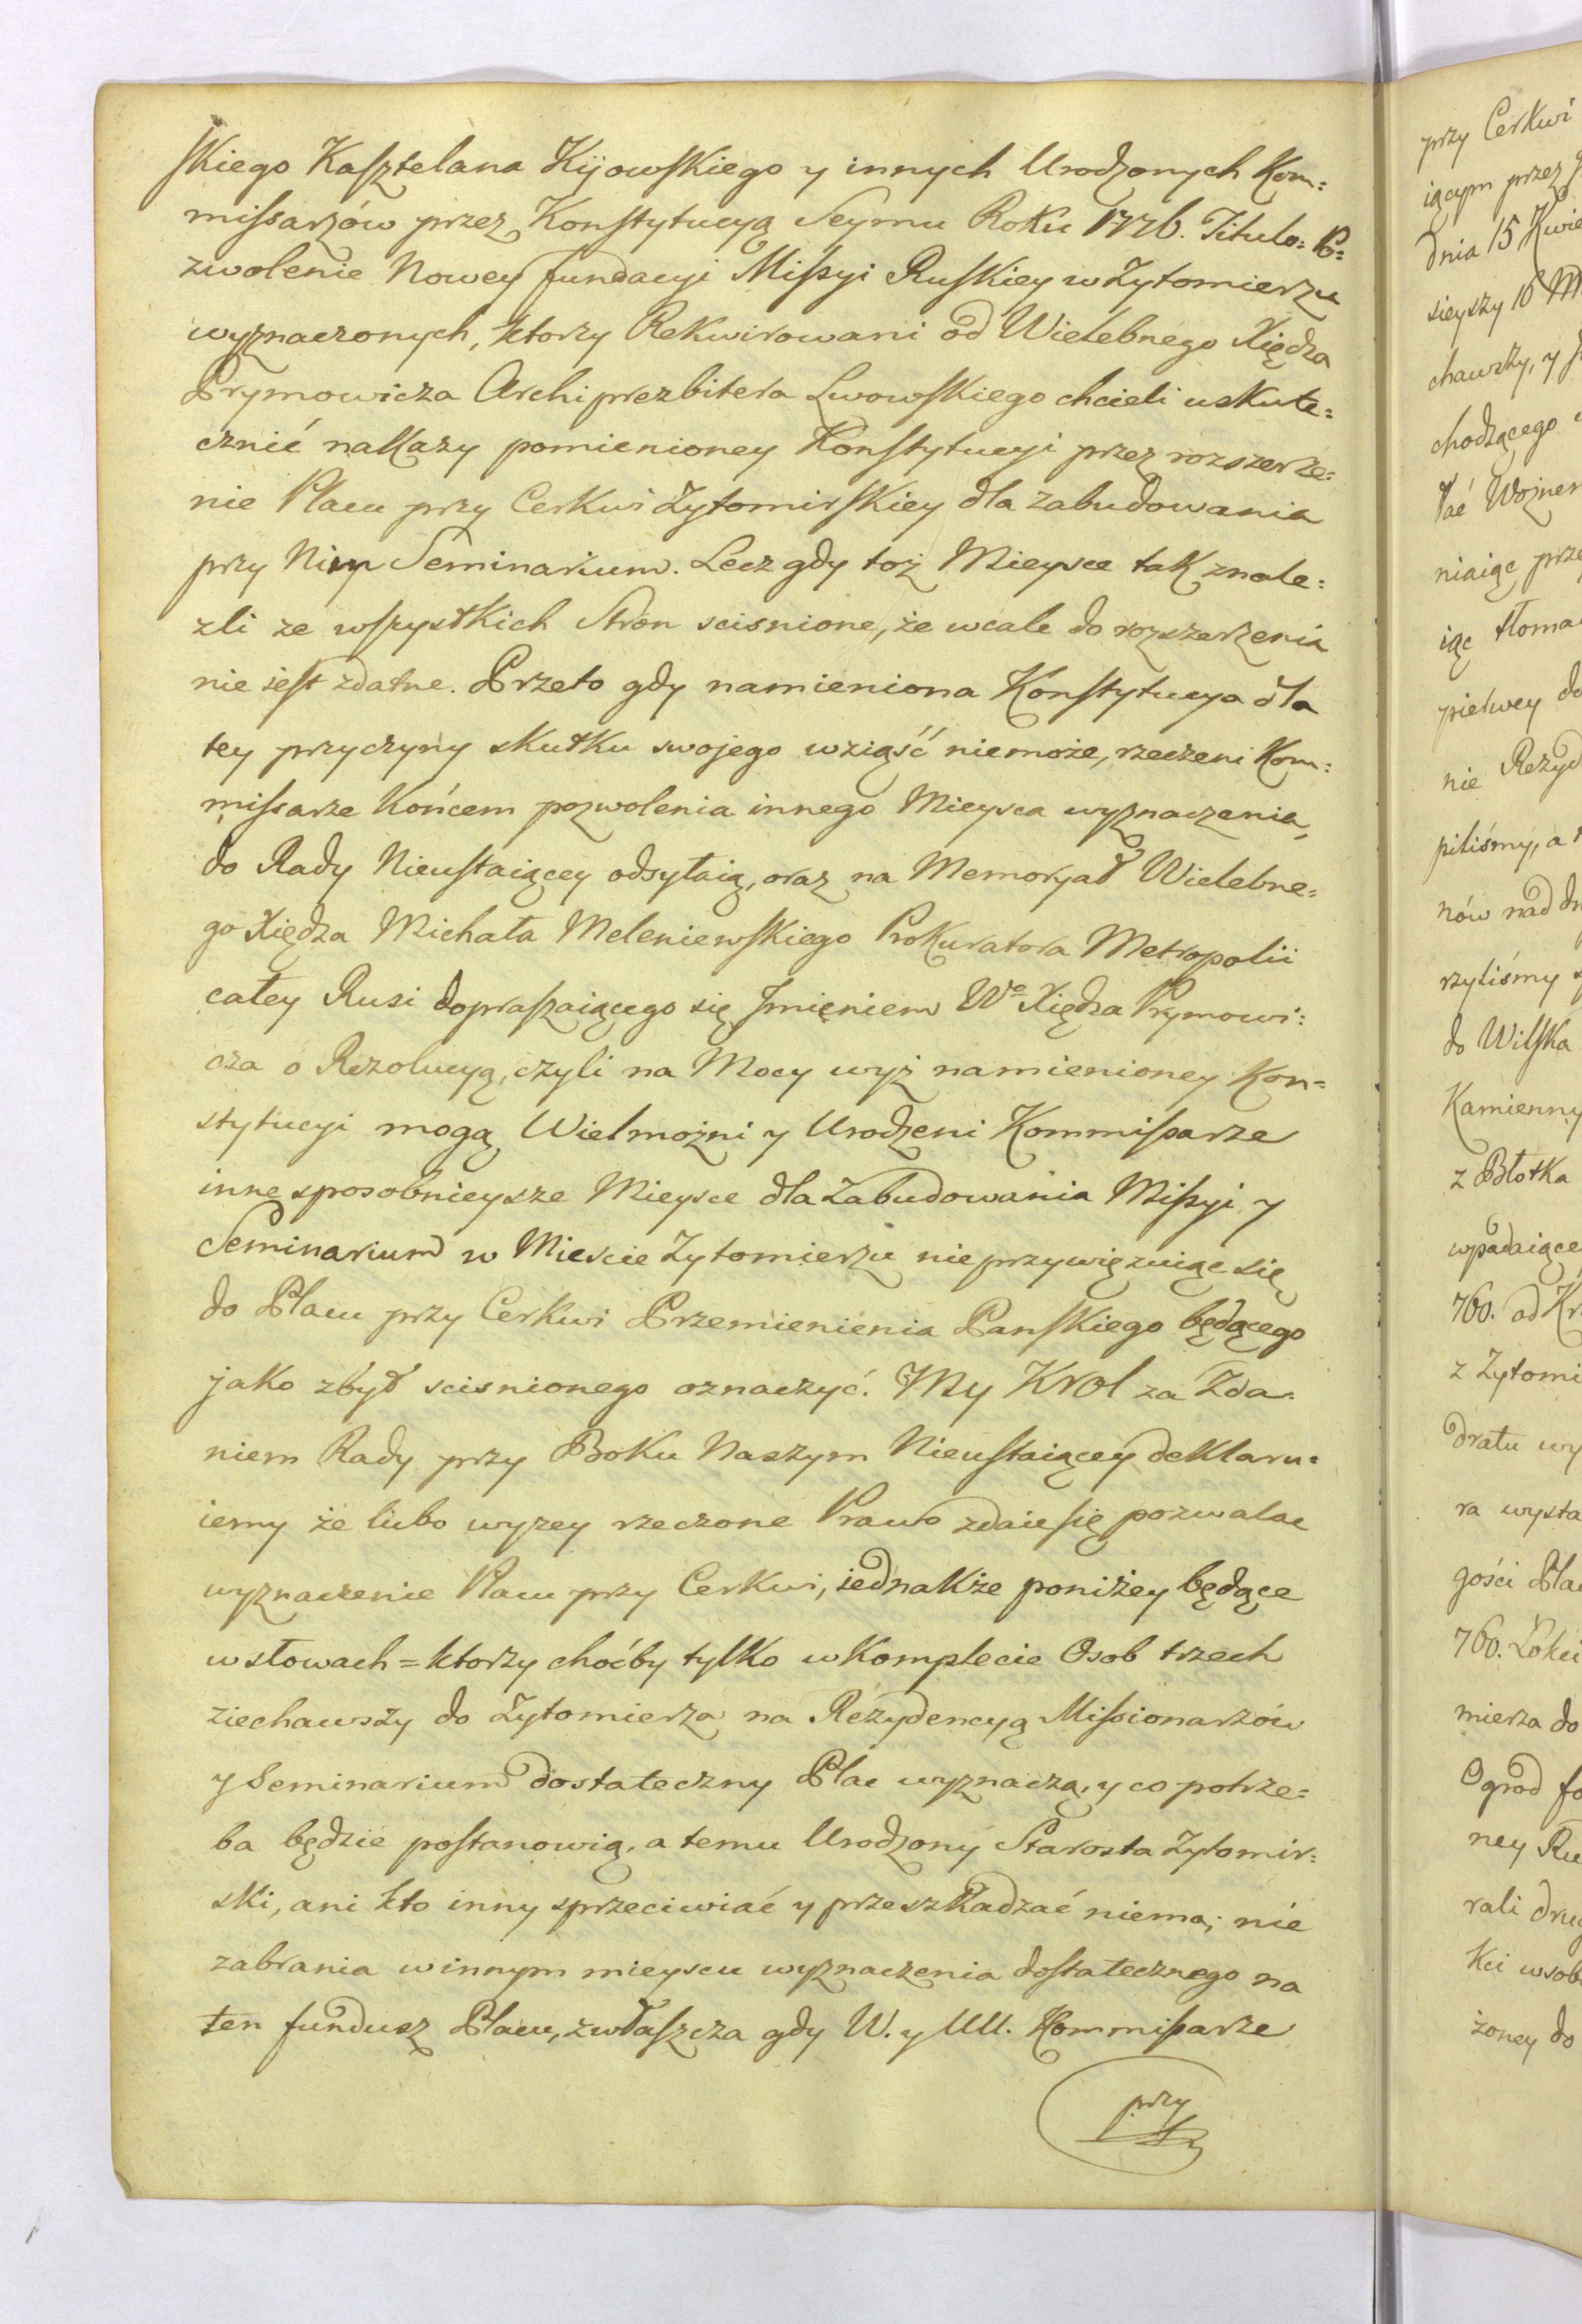 skiego Kasztelana Kijowskiego y innych Urodzonych Kom=
missarzów przez Konstytucyą Seymu Roku 1776. Titulo: Po=
zwolenie Nowey fundacyi Missyi Ruskiey w Żytomierzu
wyznaczonych, ktorzy Rekwirowani od Wielebnego Xiędza
Prymowicza Archiprezbitera Lwowskiego chcieli uskute=
cznić nakazy pomienioney Konstytucyi przez rozszerze=
nie Placu przy Cerkwi Żytomirskiey dla zabudowania
przy Niey Seminarium. Lecz gdy toż Mieysce tak znale=
zli ze wszystkich Stron scisnione, że wcale do rozszerzenia
nie iest zdatne. Przeto gdy namieniona Konstytucya dla
tey przyczyny skutku swojego wziąść niemoże, rzeczeni Kom=
missarze Końcem pozwolenia innego Mieysca wyznaczenia,
do Rady Nieustaiącey odsyłaią, oraz na Memoryał Wielebne=
go Xiędza Michała Meleniewskiego Prokuratora Metropolii
całey Rusi dopraszaiącego się Jmięniem Wo Xiędza Prymowi=
cza o Rezolucyą, czyli na Mocy wyż namienioney Kon=
stytucyi mogą Wielmożni y Urodzeni Kommissarze
inne sposobnieysze Mieysce dla Zabudowania Missyi y
Seminarium w Miescie Żytomierzu nie przywięzuiąc się
do Placu przy Cerkwi Przemienienia Panskiego będącego
jako zbyt scisnionego oznaczyć. My Krol za Zda=
niem Rady przy Boku Naszym Nieustaiącey deklaru=
iemy że lubo wyzey rzeczone Prawo zdaie się pozwalac
wyznaczenie Placu przy Cerkwi, iednakże poniżey będące
w słowach = ktorzy choćby tylko w Komplecie Osob trzech
ziechawszy do Żytomierza na Rezydencyą Missionarzów
y Seminarium dostateczny Plac wyznaczą, y co potrze=
ba będzie postanowią, a temu Urodzony Starosta Żytomir=
ski, ani kto inny sprzeciwiać y przeszkadzać niema; nie
zabrania w innym mieyscu wyznaczenia dostatecznego na
ten fundusz Placu, zwłaszcza gdy W. y UU. Kommissarze
przy
przy Cerkwi
iącym przez
dnia 15 Kwie
sieyszy 16 M
chawszy, y
chodzącego
niaiąc prze
iąc tłoma
pierwey do
nie Rezyd
piliśmy, a
nów nad
rzyliśmy
do Wilska
Kamienny
z Błotka
wpadaiące
760. od Kr
z Żytomi
dratu wy
ra wysta
gości Plac
760. Łokci
mierza do
Ogrod fo
ney Ru
rali drug
kci wsob
żoney do